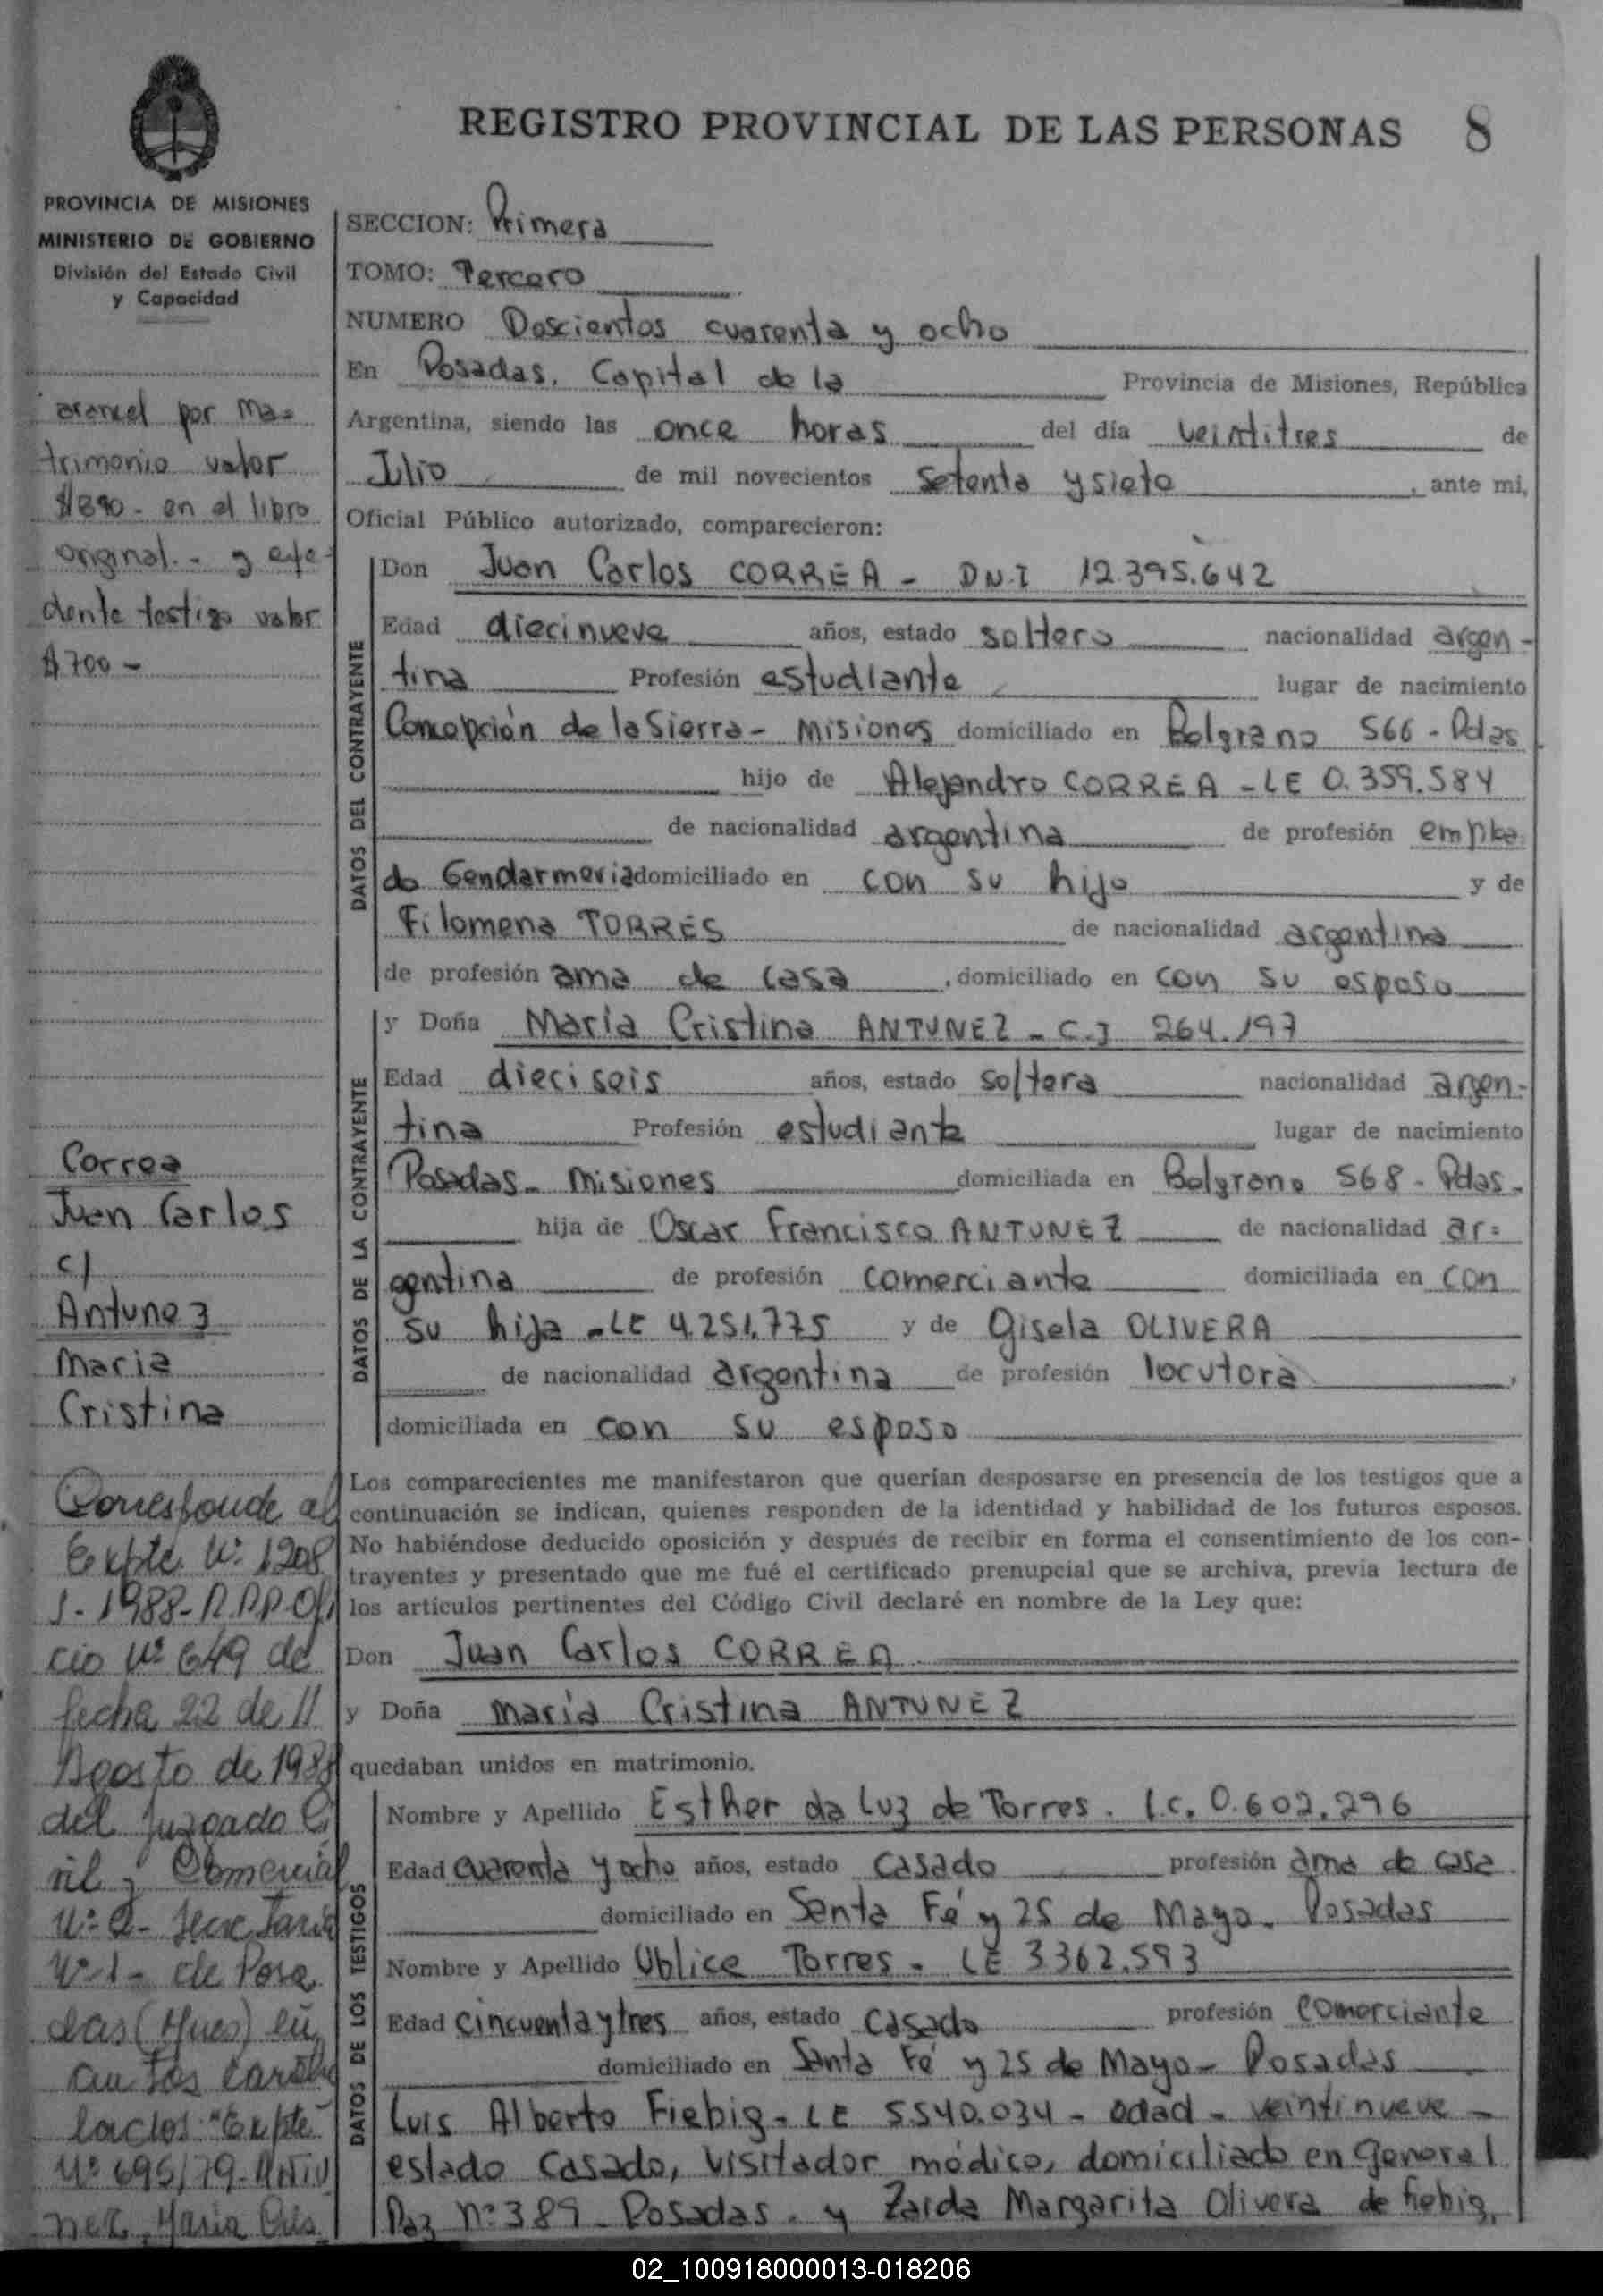 REGISTRO PROVINCIAL DE LAS PERSONAS 8
PROVINCIA DE MISIONES
MINISTERIO DE GOBIERNO
División del Estado Civil
y Capacidad
arancel por ma=
trimonio valor
$390- en el libro
original.- y exce-
dente testigo valor
$700-
Correa
Juan Carlos
c/
Antunez
Maria
Cristina
Corresponde al
Expte. Nº 1208
1988- R.P.P. Ofi
cio Nº 649 de
fecha 22 de
Agosto de 1988
del Juzgado Ci
vil y Comercial
Nº 2- Secretaria
Nº 1- de Posa
das (Mnes) en
autos caratu
lados: "Expte
Nº 695/79- ANTU
NEZ, Maria Cris
SECCION: Primera
TOMO: Tercero
NUMERO Doscientos cuarenta y ocho
En Posadas, Capital de la Provincia de Misiones, República
Argentina, siendo las once horas del día veintitres de
Julio de mil novecientos setenta y siete, ante mi,
Oficial Público autorizado, comparecieron:
DATOS DEL CONTRAYENTE
Don Juan Carlos CORREA - DNI 12.395.642
Edad diecinueve años, estado soltero nacionalidad argen-
tina Profesión estudiante lugar de nacimiento
Concepción de la Sierra - Misiones domiciliado en Belgrano 566 - Pdas
hijo de Alejandro CORREA - LE 0.359.584
de nacionalidad argentina de profesión emplea
do Gendarmeria domiciliado en con su hijo y de
Filomena TORRES de nacionalidad argentina
de profesión ama de casa, domiciliado en con su esposo
DATOS DE LA CONTRAYENTE
y Doña María Cristina ANTUNEZ - C.I 264.197
Edad dieciseis años, estado soltera nacionalidad argen-
tina Profesión estudiante lugar de nacimiento
Posadas - Misiones domiciliada en Belgrano 568 - Pdas.
hija de Oscar Francisco ANTUNEZ de nacionalidad ar=
gentina de profesión comerciante domiciliada en con
su hija - LE 4.251.775 y de Gisela OLIVERA
de nacionalidad argentina de profesión locutora,
domiciliada en con su esposo
Los comparecientes me manifestaron que querían desposarse en presencia de los testigos que a
continuación se indican, quienes responden de la identidad y habilidad de los futuros esposos.
No habiéndose deducido oposición y después de recibir en forma el consentimiento de los con-
trayentes y presentado que me fué el certificado prenupcial que se archiva, previa lectura de
los artículos pertinentes del Código Civil declaré en nombre de la Ley que:
Don Juan Carlos CORREA
y Doña María Cristina ANTUNEZ
quedaban unidos en matrimonio.
DATOS DE LOS TESTIGOS
Nombre y Apellido Esther da Luz de Torres. l.c. 0.602.296
Edad cuarenta y ocho años, estado casado profesión ama de casa
domiciliado en Santa Fé y 25 de Mayo. Posadas
Nombre y Apellido Ublice Torres - LE 3362.593
Edad cincuenta y tres años, estado casado profesión comerciante
domiciliado en Santa Fé y 25 de Mayo - Posadas
Luis Alberto Fiebig - LE 5.540.034 - edad - veintinueve -
estado casado, visitador médico, domiciliado en General
Paz nº 389 - Posadas. y Zaida Margarita Olivera de fiebig,
02_100918000013-018206